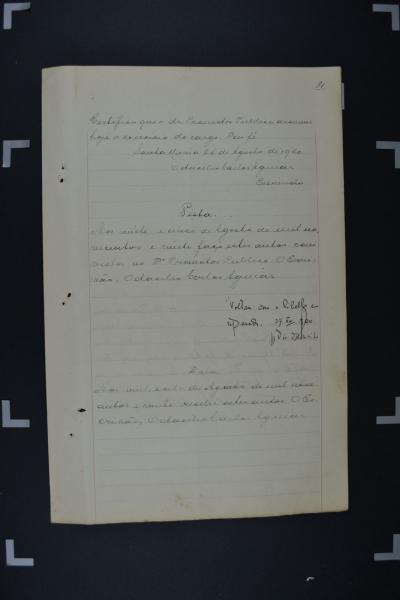 31.
Certifico que o dr. Promotor Publico assumiu
hoje o exercicio do cargo. Dou fé
Santa Maria 26 de Agosto de 1920
Odacilio Carlos Aguiar
Escrivão
Vista.
Aos vinte e cinco de Agosto de mil no
vecentos e vinte faço estes autos com
vista ao Dr. Promotor Publico. O Escri-
vão, Odacilio Carlos Aguiar
Voltam com o
Data
Aos vinte e de Agosto de mil nove
centos e vinte recebi estes autos. O Es-
crivão, Odacilio Carlos Aguiar